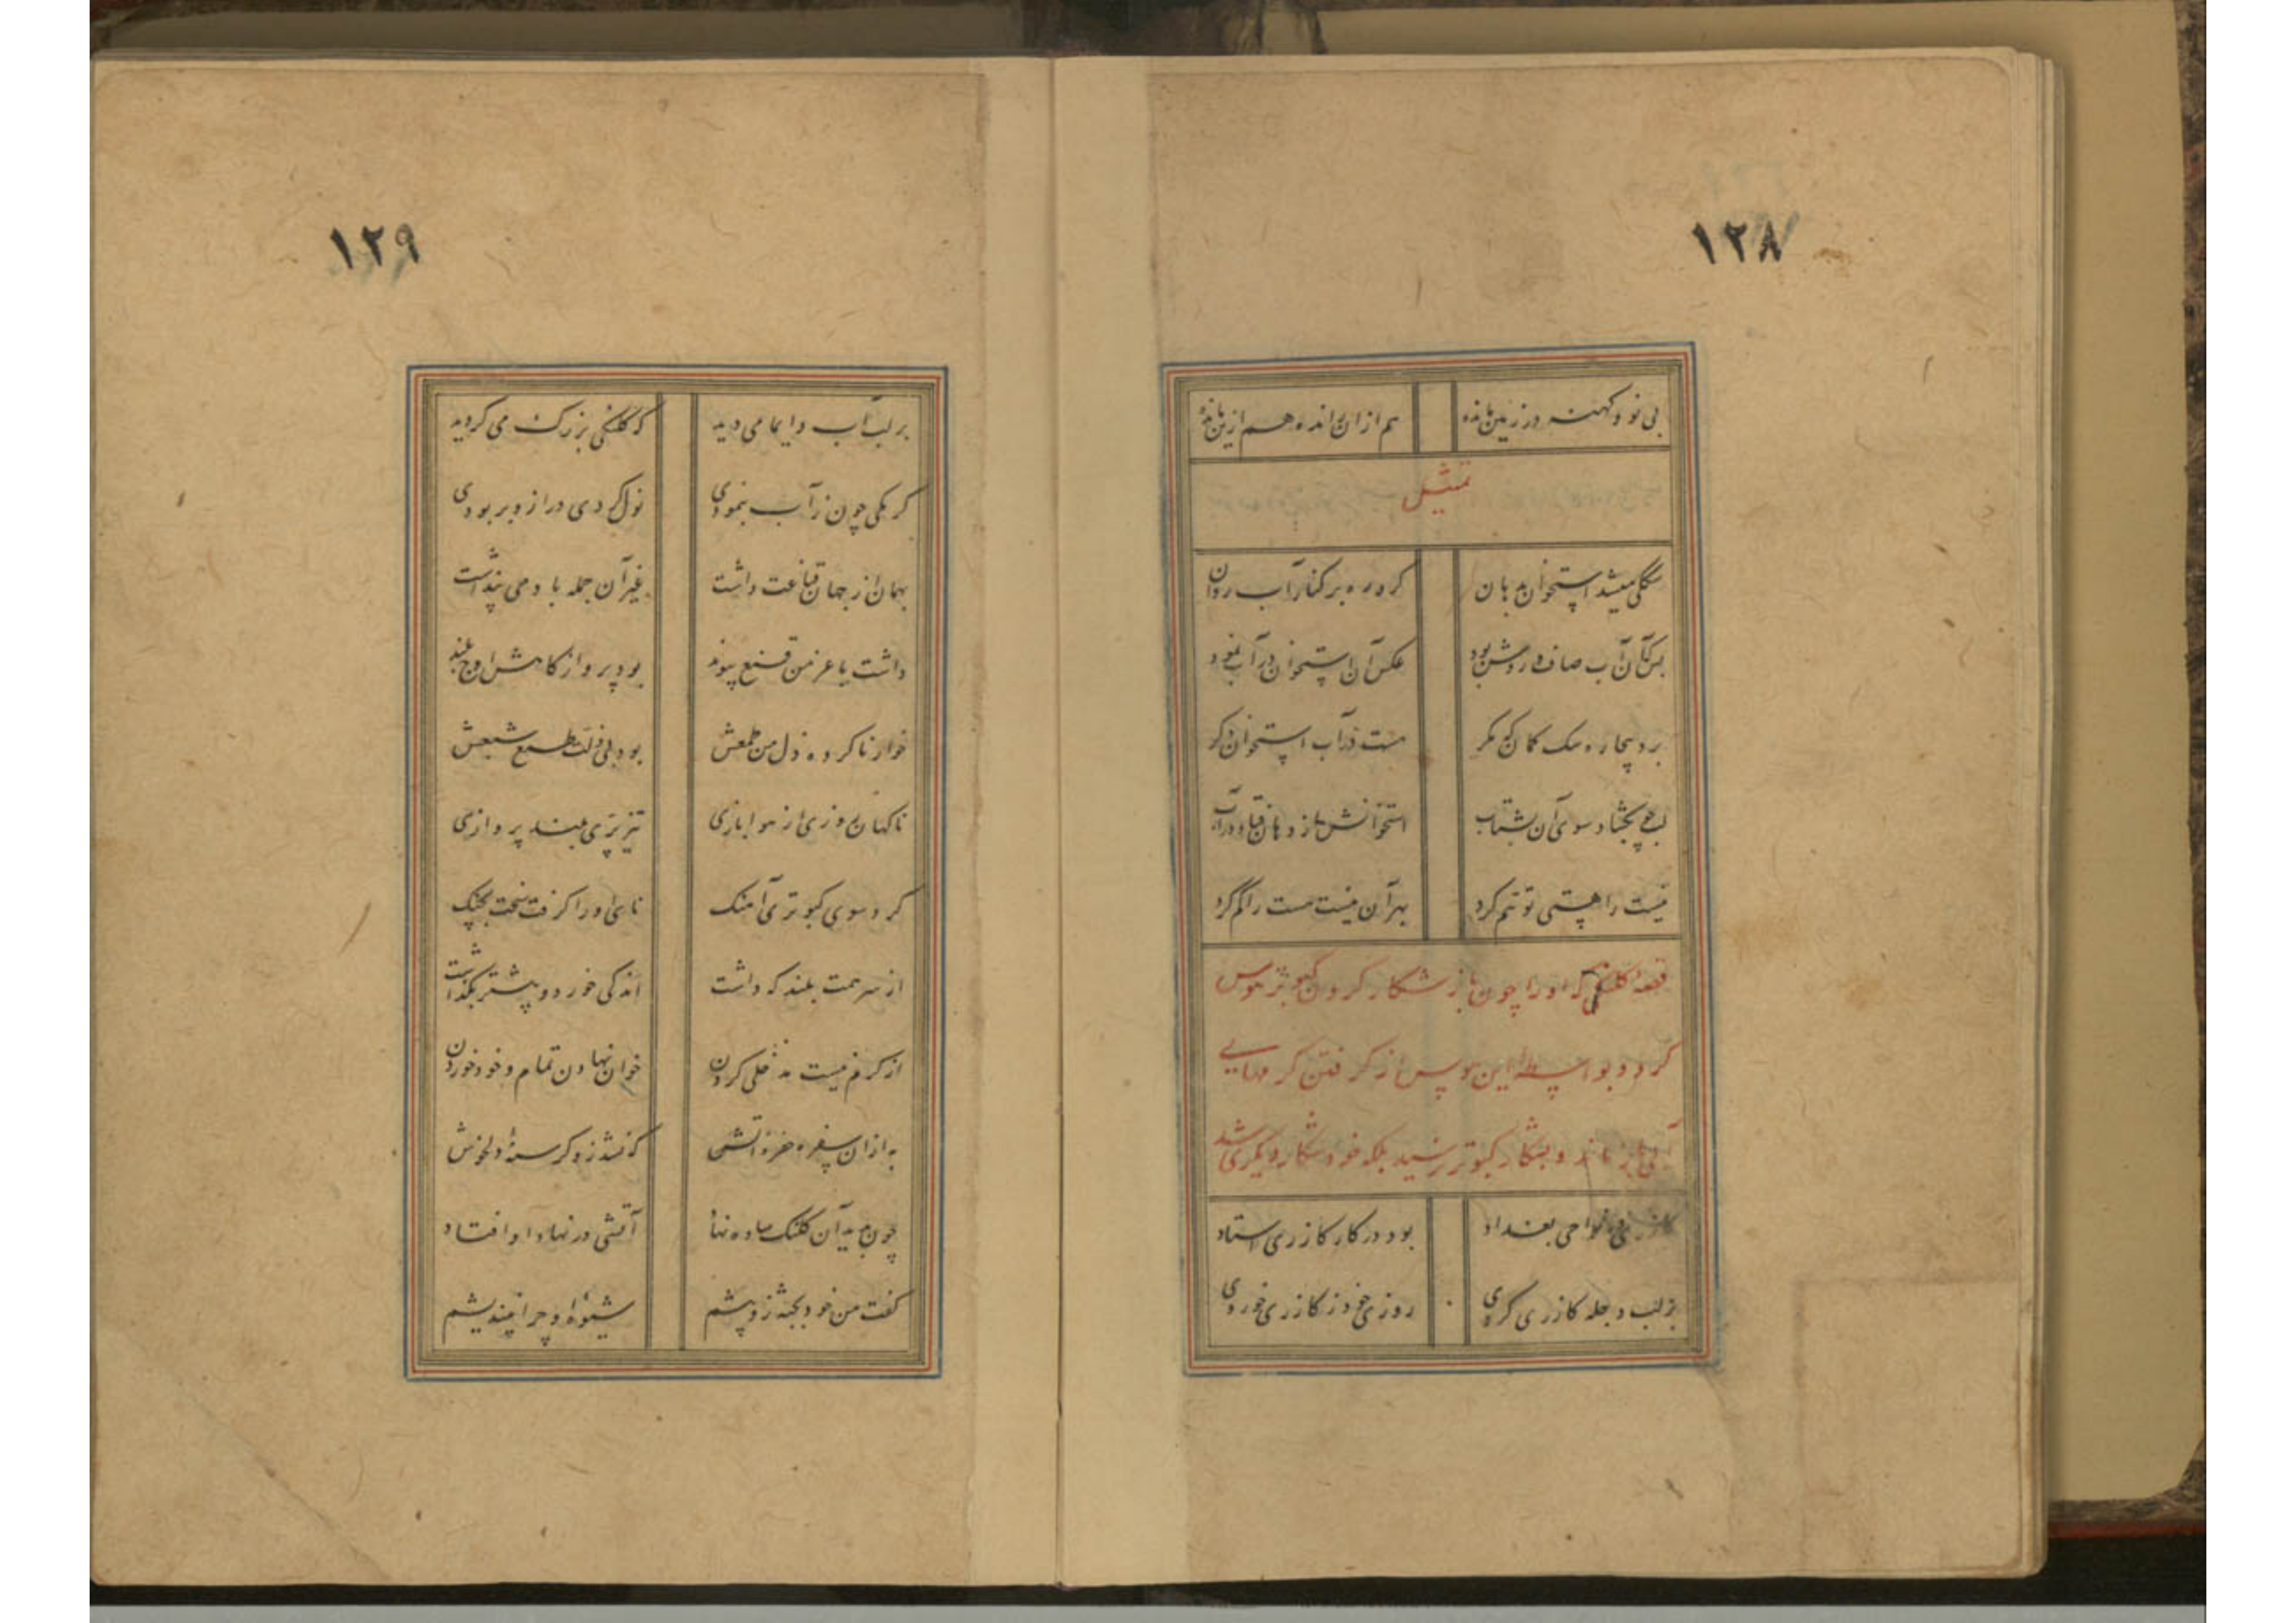 ۱۲۸
بی نو و کهنه در زمین مانده هم از ان مانده هم ازین مانده
تمثیل
سگکی میشد استخوان بدهان کرده ره بر کنار آب روان
بسکه آن آب صاف و روشن بود عکس آن استخوان در آب نمود
برد بیچاره سک کمان که مکر هست در آب استخوان دکر
لب چو بکشاد سوی آن بشتاب استخوانش از دهان فتاد در آب
نیست را هستی توهم کرد بهر آن نیست هست را کم کرد
قصه کلنکی که او را چون باز شکار کردن کبوتر هوس
کرد و بواسطه این هوس از کرفتن کرمهای
آبی باز ماند و بشکار کبوتر نرسید بلکه خود شکار دیکری شد
کازری در نواحی بغداد بود در کار کازری استاد
بر لب دجله کازری کردی روزی خود ز کازری خوردی
۱۲۹
بر لب آب دایما می دید که کلنکی بزرک می کردید
کرمکی چون ز آب بنمودی نول کردی دراز و بربودی
بهمان از جهان قناعت داشت غیر آن جمله باد می پنداشت
داشت با عز من قنع پیوند بود پرواز کامش اوج بلند
خوار ناکرده ذل من طمعش بود بی ذلت طمع شبعش
ناکهان روزی از هوا بازی تیز پری بلند پروازی
کرد سوی کبوتری آهنک نای او را کرفت سخت بچنک
از سر همت بلند که داشت اندکی خورد و پیشتر بکذاشت
از کرم نیست مدخلی کردن خوان نهادن تمام و خود خوردن
به ازان سفره خفره آتشی که نشد زو کرسنه دلخوش
چون بدید آن کلنک ساده نهاد آتشی در نهاد او افتاد
کفت من خود بجثه زو بیشم شیوه او چرا نیندیشم